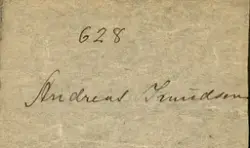 628
Andreas Knudson